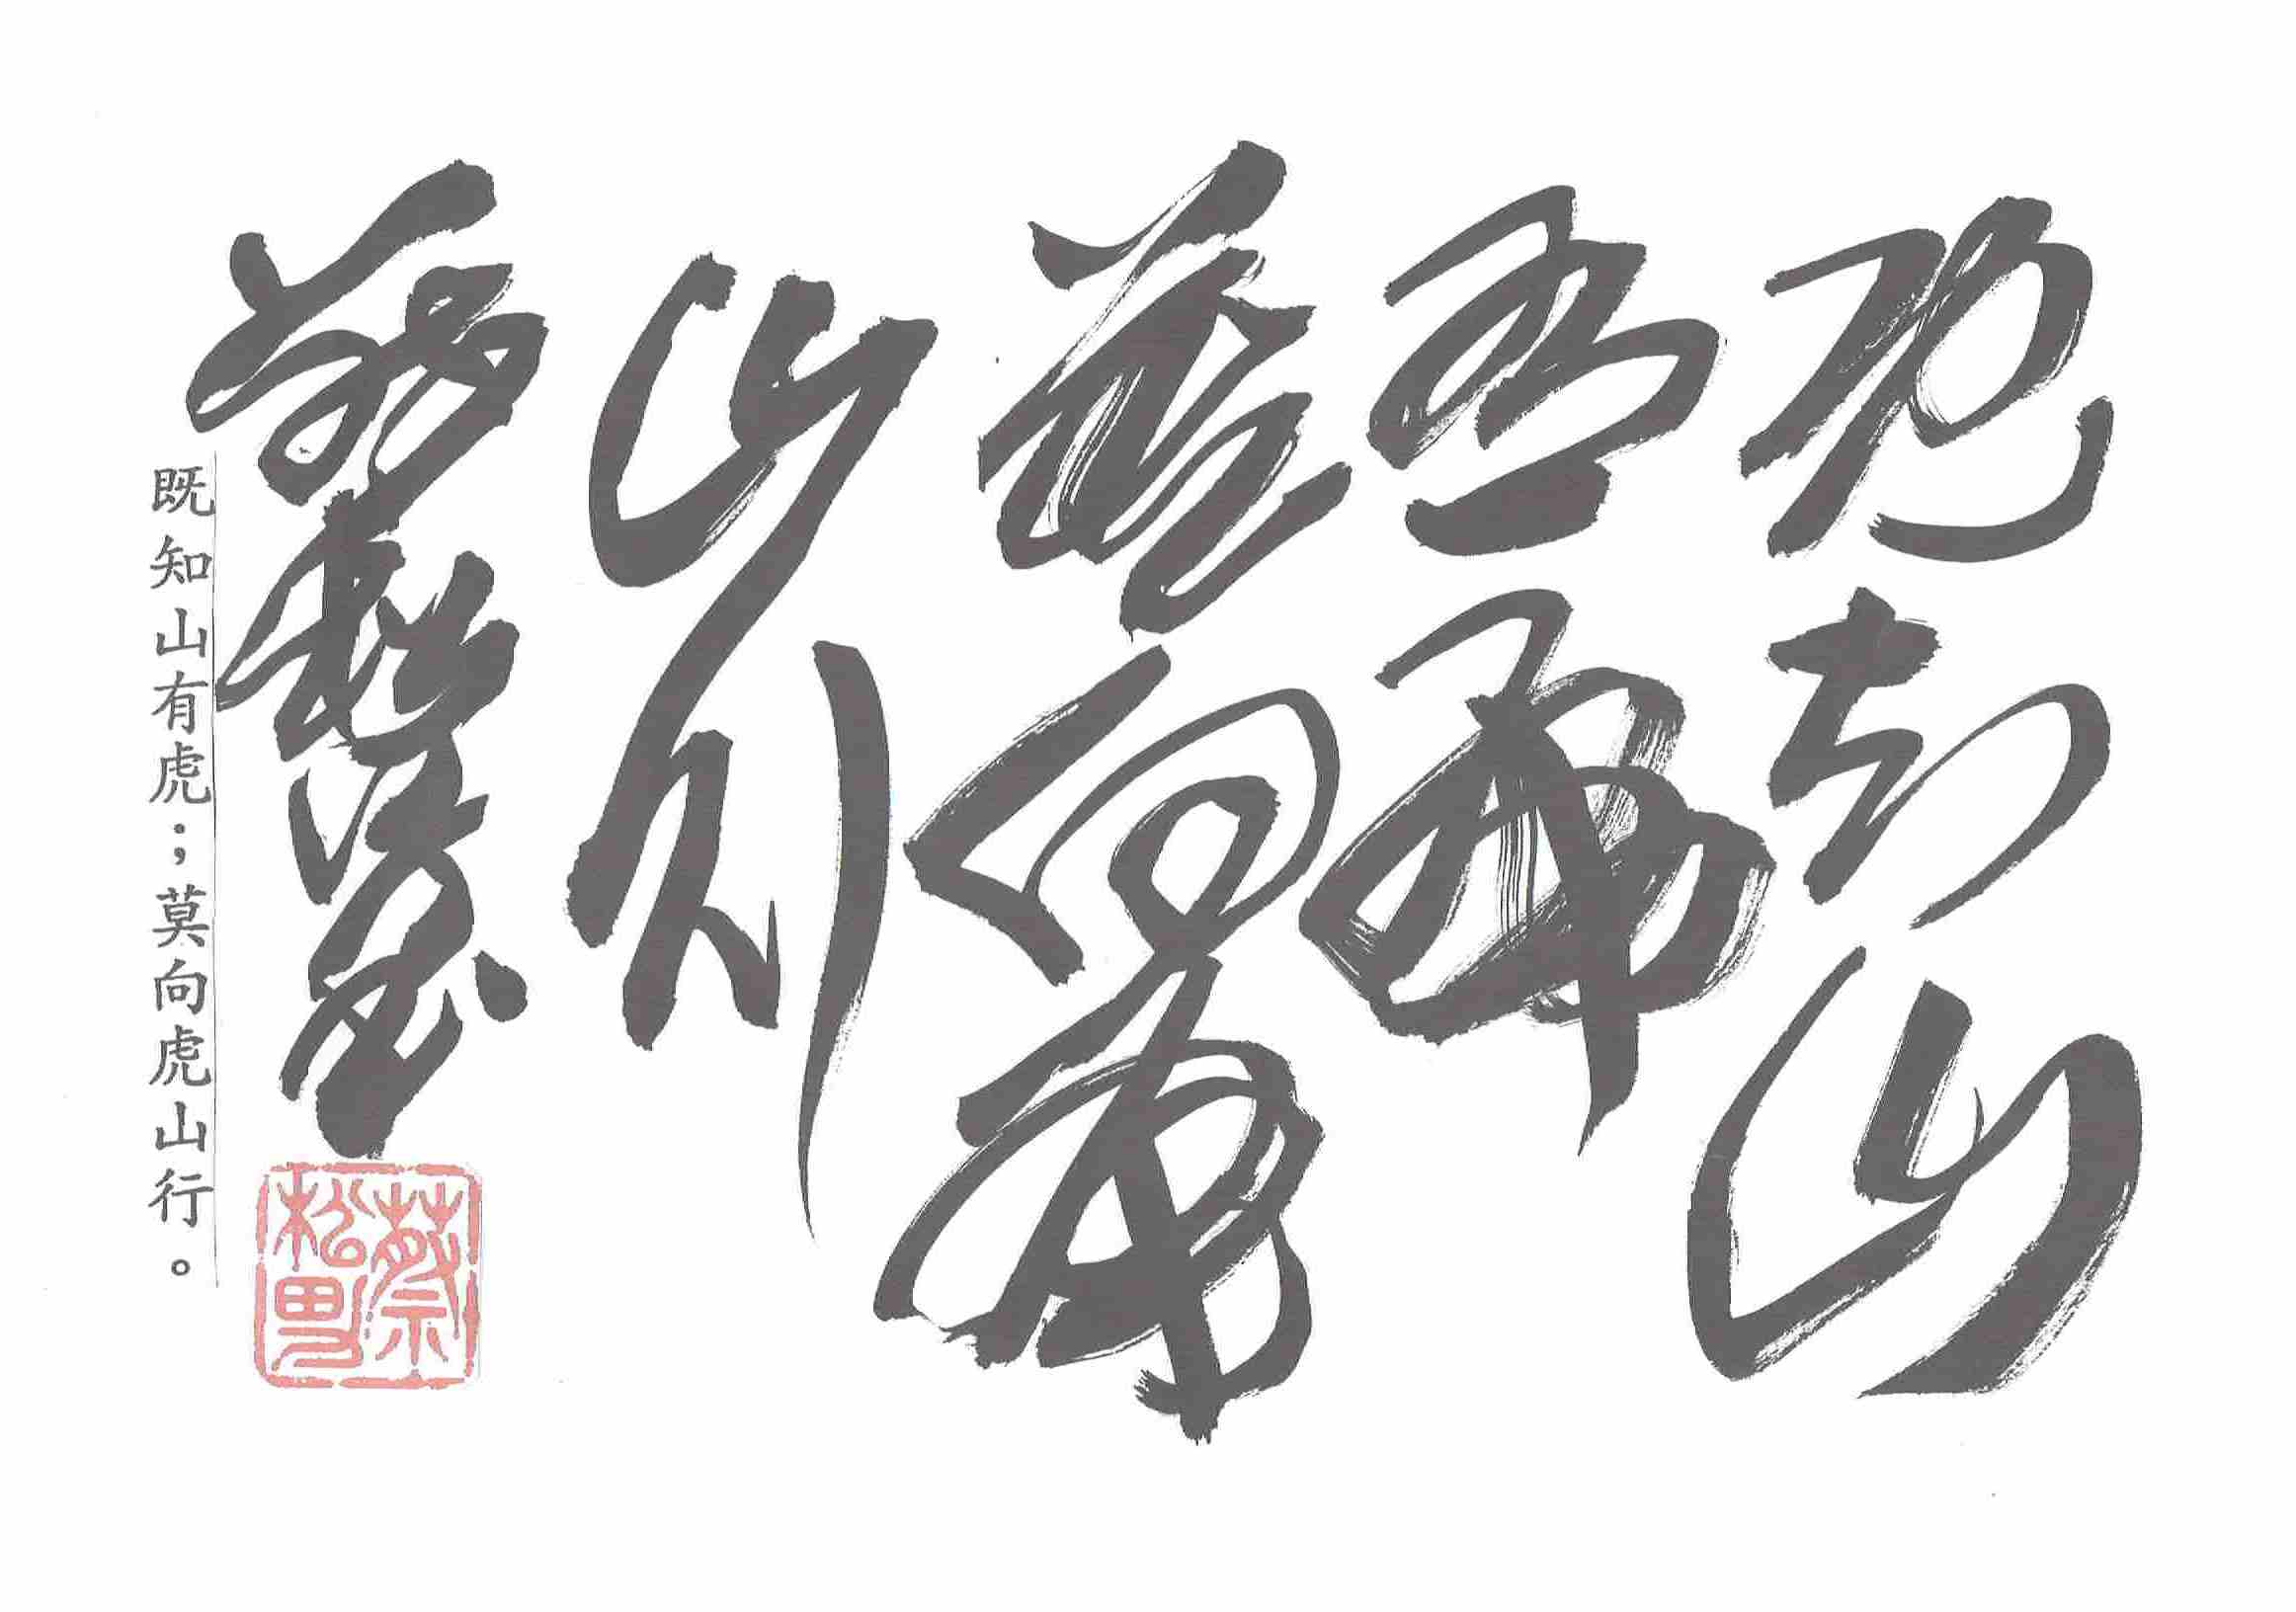 既知山
有虎
莫向虎
山行
蔡松
既知山有虎；莫向虎山行。
蔡松男